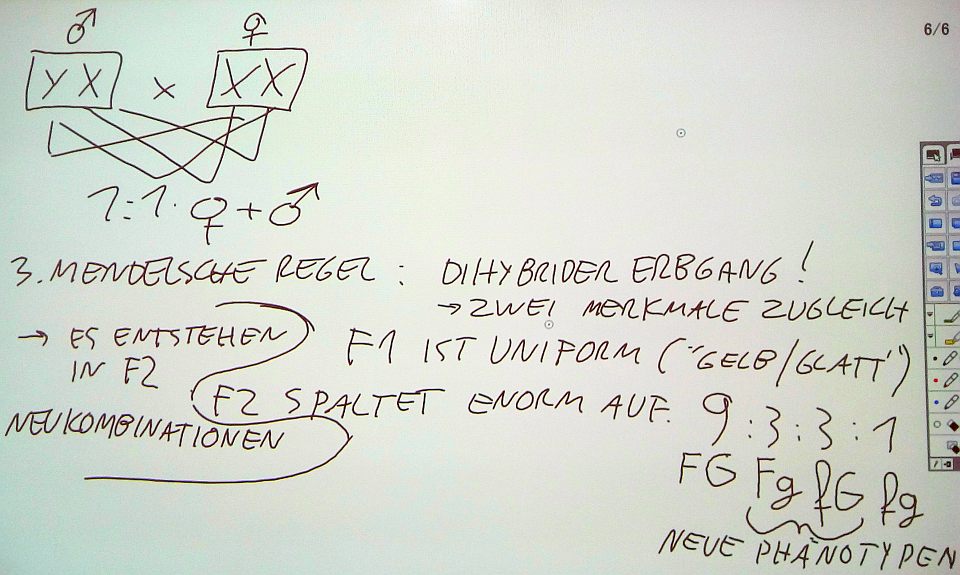 6/6
♂ ♀
YX x XX
1:1. ♀+♂
3. MENDELSCHE REGEL: DIHYBRIDER ERBGANG!
→ ZWEI MERKMALE ZUGLEICH
→ ES ENTSTEHEN
IN F2
NEUKOMBINATIONEN
F1 IST UNIFORM ("GELB/GLATT")
F2 SPALTET ENORM AUF. 9:3:3:1
FG Fg fG fg
NEUE PHÄNOTYPEN